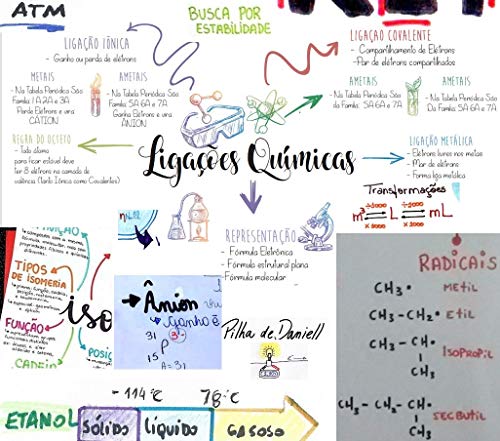 ATM
BUSCA POR
ESTABILIDADE
LIGAÇÃO IÔNICA
- Ganho ou perda de elétrons
METAIS
- Na Tabela Periódica São
Família 1A 2A e 3A
Perde Elétrons e vira
CÁTION
AMETAIS
- Na Tabela Periódica São
da Família 5A 6A e 7A
Ganha Elétrons e vira
ÂNION
LIGAÇÃO COVALENTE
- Compartilhamento de Elétrons
- Par de elétrons compartilhados
AMETAIS
- Na Tabela Periódica São
da Família 5A 6A e 7A
AMETAIS
- Na Tabela Periódica São
Da Família 5A 6A e 7A
REGRA DO OCTETO
- Todo átomo
para ficar estável deve
ter 8 elétrons na camada de
valência (Tanto Iônica como Covalentes)
Ligações Químicas
LIGAÇÃO METÁLICA
- Elétrons livres nos metais
- Mar de elétrons
- Forma liga metálica
Transformações
÷1000 ÷1000
m³ = L = mL
x 1000 x 1000
REPRESENTAÇÃO
- Fórmula Eletrônica
- Fórmula estrutural plana
- Fórmula molecular
TIPOS
DE ISOMERIA
iso
FUNÇÃO
POSIÇ
CADEIA
→ Ânion
Ganho é
31 3-
P
15
A=31
Pilha de Daniell
RADICAIS
CH₃• METIL
CH₃-CH₂• ETIL
CH₃-CH• ISOPROPIL
CH₃
CH₃-CH₂-CH• SECBUTIL
CH₃
-114°C 78°C
ETANOL SÓLIDO LÍQUIDO GASOSO